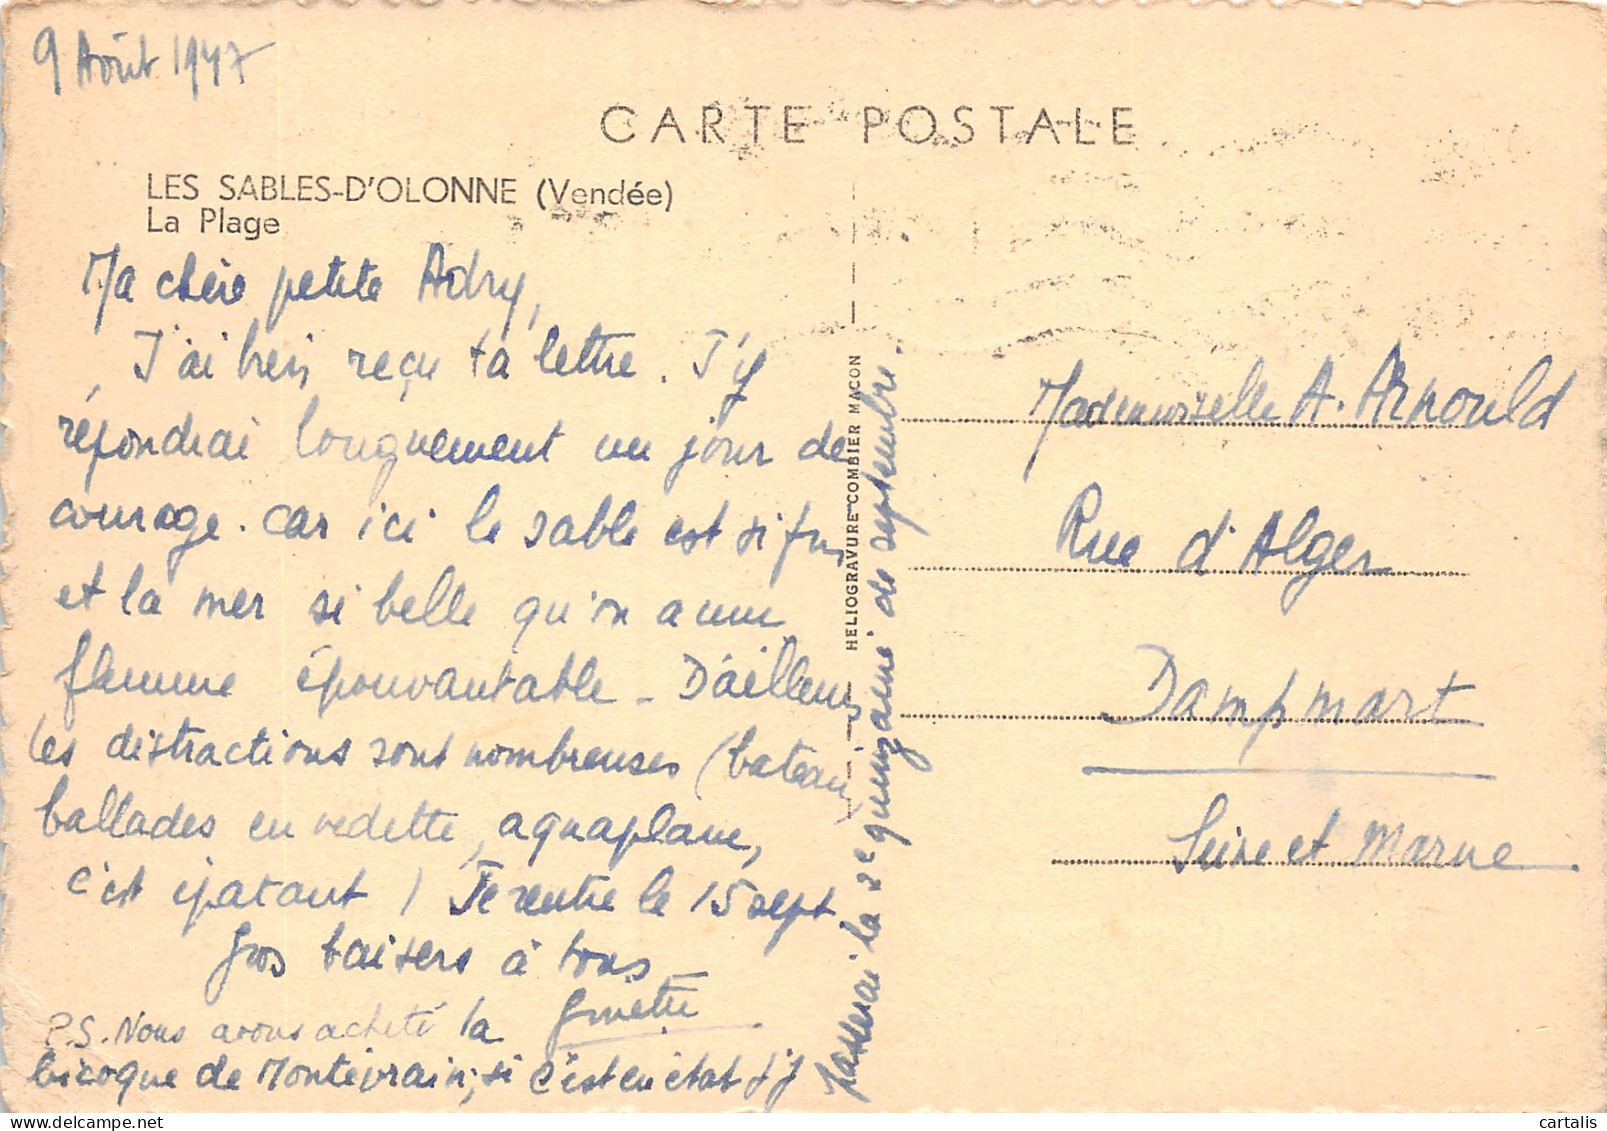 9 Août 1947
CARTE POSTALE
LES SABLES-D'OLONNE (Vendée)
La Plage
Ma chère petite Adry,
J'ai bien reçu ta lettre. J'y
répondrai longuement un jour de
courage. car ici le sable est si fin
et la mer si belle qu'on a une
flemme épouvantable - D'ailleurs
les distractions sont nombreuses (bateau,
ballades en vedette, aquaplane,
c'est épatant ! Je rentre le 15 sept.
Gros baisers à tous
Ginette
P.S. Nous avons acheté la
bicoque de Montévrain ; si c'est en état j'y
passerai la 2e quinzaine de septembre.
HELIOGRAVURE COMBIER MACON
Mademoiselle A. Arnould
Rue d'Alger
Dampmart
Seine et Marne
cartalis